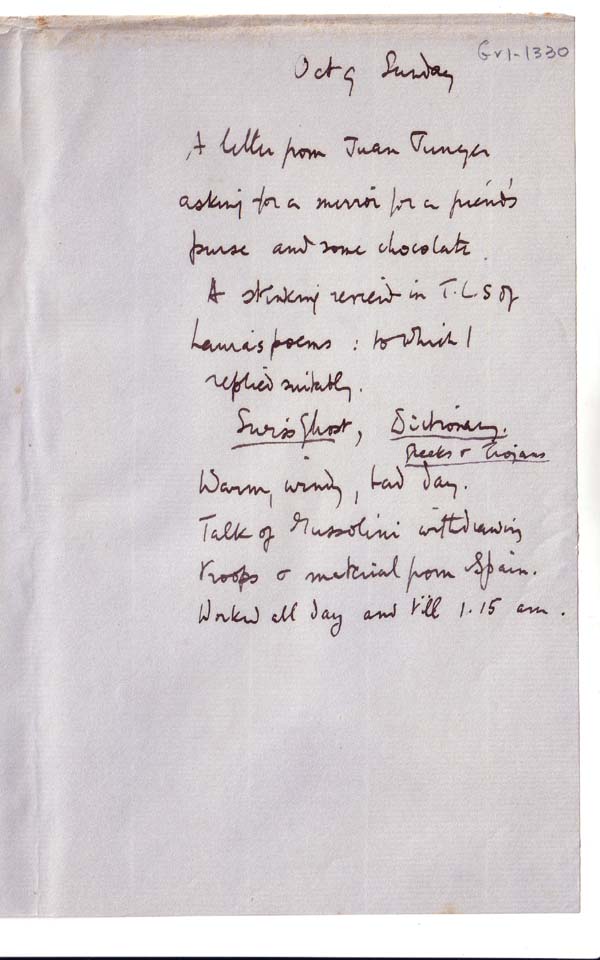 Gv1-1330
Oct 9 Sunday
A letter from Juan Junyer
asking for a mirror for a friend's
purse and some chocolate.
A stinking review in T.L.S of
Laura's poems : to which I
replied suitably.
Swiss Ghost, Dictionary.
Greeks & Trojans
Warm, windy, bad day.
Talk of Mussolini withdrawing
troops & material from Spain.
Worked all day and till 1.15 am.